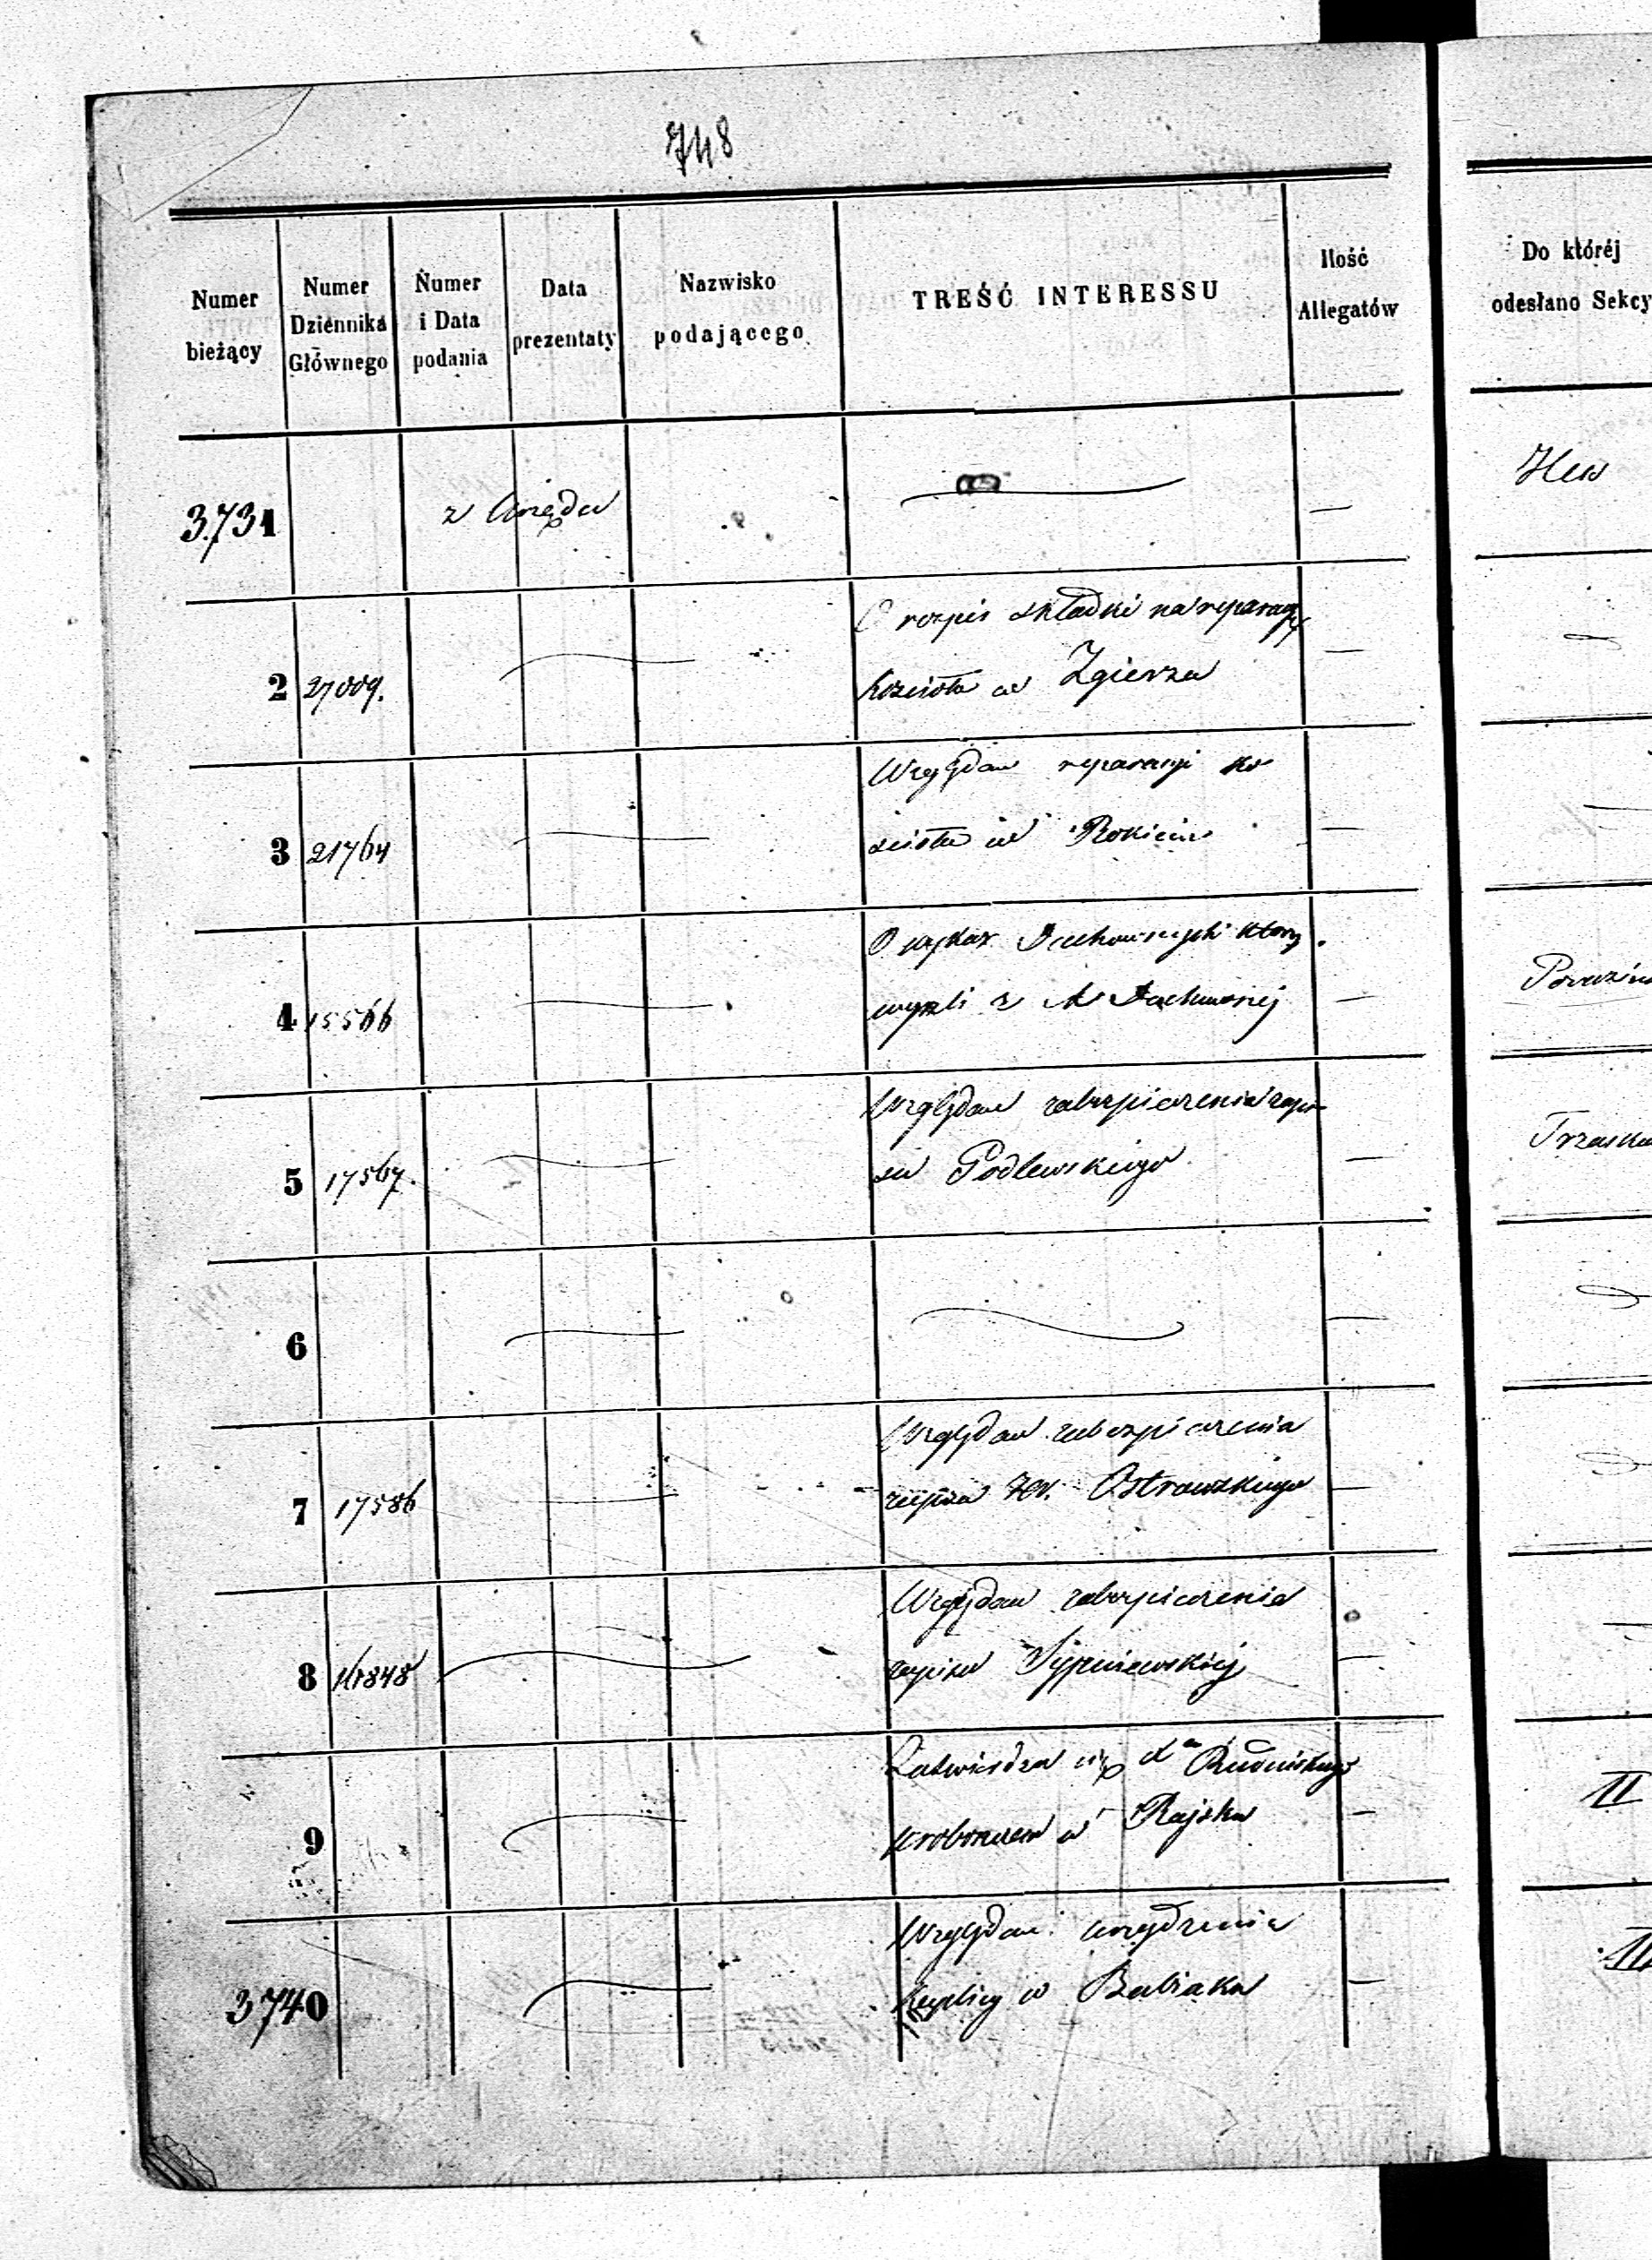 748
Numer bieżący
Numer Dziennika Głównego
Numer i Data podania
Data prezentaty
Nazwisko podającego
TREŚĆ INTERESSU
Ilość Allegatów
Do któréj odesłano Sekcy
3731
z Urzędu
—
2
27009.
O rozpis składki na reparacy
kościoła w Zgierzu
—
3
21764
Względem reparacyi ko
ścioła w Rokiciu
—
4
15566
O wykaz Duchownych którzy
wyszli z Duchownej
—
5
17567.
Względem zabezpieczenia zapi
su Podlewskiego
—
6
—
7
17586
Względem zabezpieczenia
zapisu Ostrowskiego
—
8
Względem zabezpieczenia
zapisu Sypniewskiej
—
9
Zatwierdza się Xa Rudnickiego
proboszczem w Rajsku
—
II
3740
Względem urządzenia
kaplicy w Babiaku
—
II